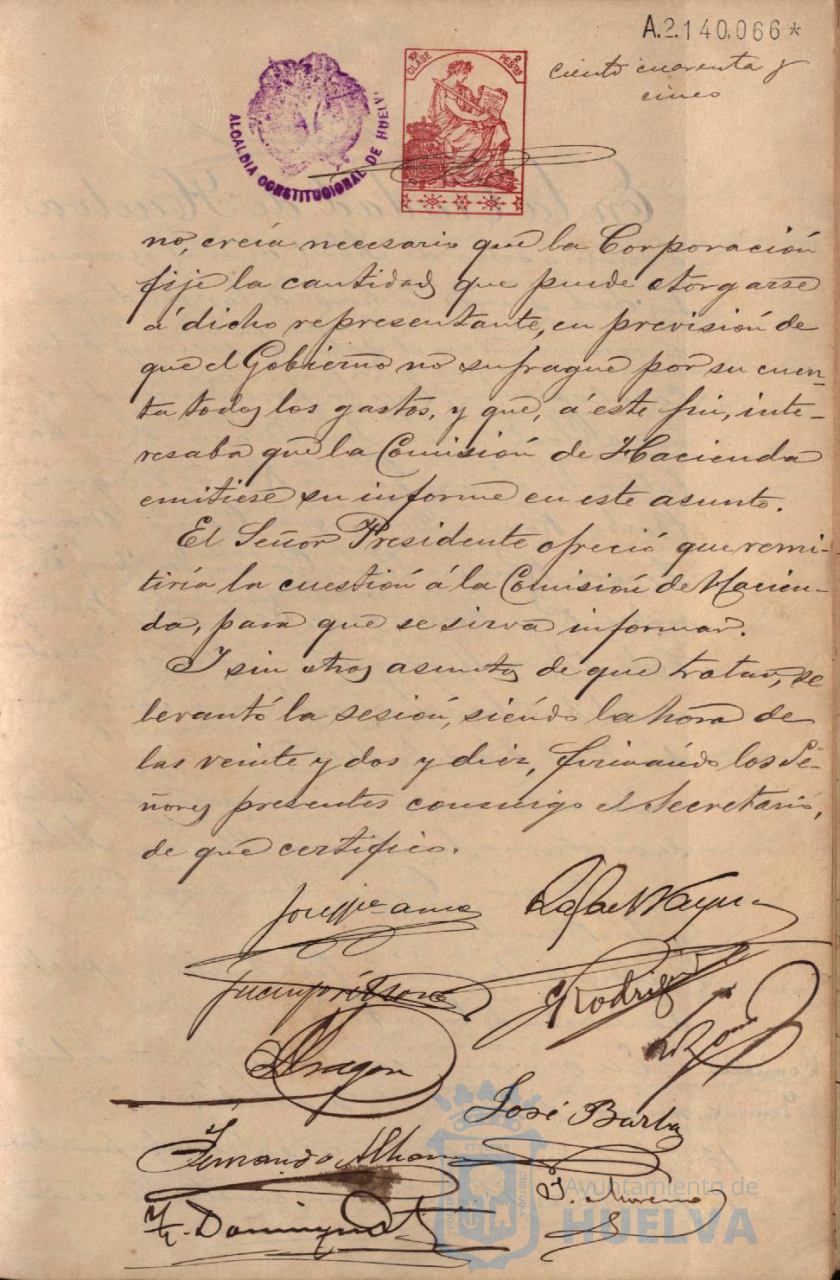 A.2.140,066*
ciento cuarenta y
cinco
ALCALDIA CONSTITUCIONAL DE HUELVA
10ª CLASE
2 PESTAS
no, creía necesario que la Corporación
fije la cantidad que puede otorgarse
á dicho representante, en previsión de
que el Gobierno no sufrague por su cuen-
ta todos los gastos, y que, á este fin, inte-
resaba que la Comisión de Hacienda
emitiese su informe en este asunto.
El Señor Presidente ofreció que remi-
tiría la cuestión á la Comisión de Hacien-
da, para que se sirva informar.
Y sin otros asuntos de que tratar, se
levantó la sesión, siendo la hora de
las veinte y dos y diez, firmando los Se-
ñores presentes conmigo el Secretario,
de que certifico.
Rodriguez
Aragon
José Barba
Fernando
J. Moreno
Dominguez
Ayuntamiento de
HUELVA